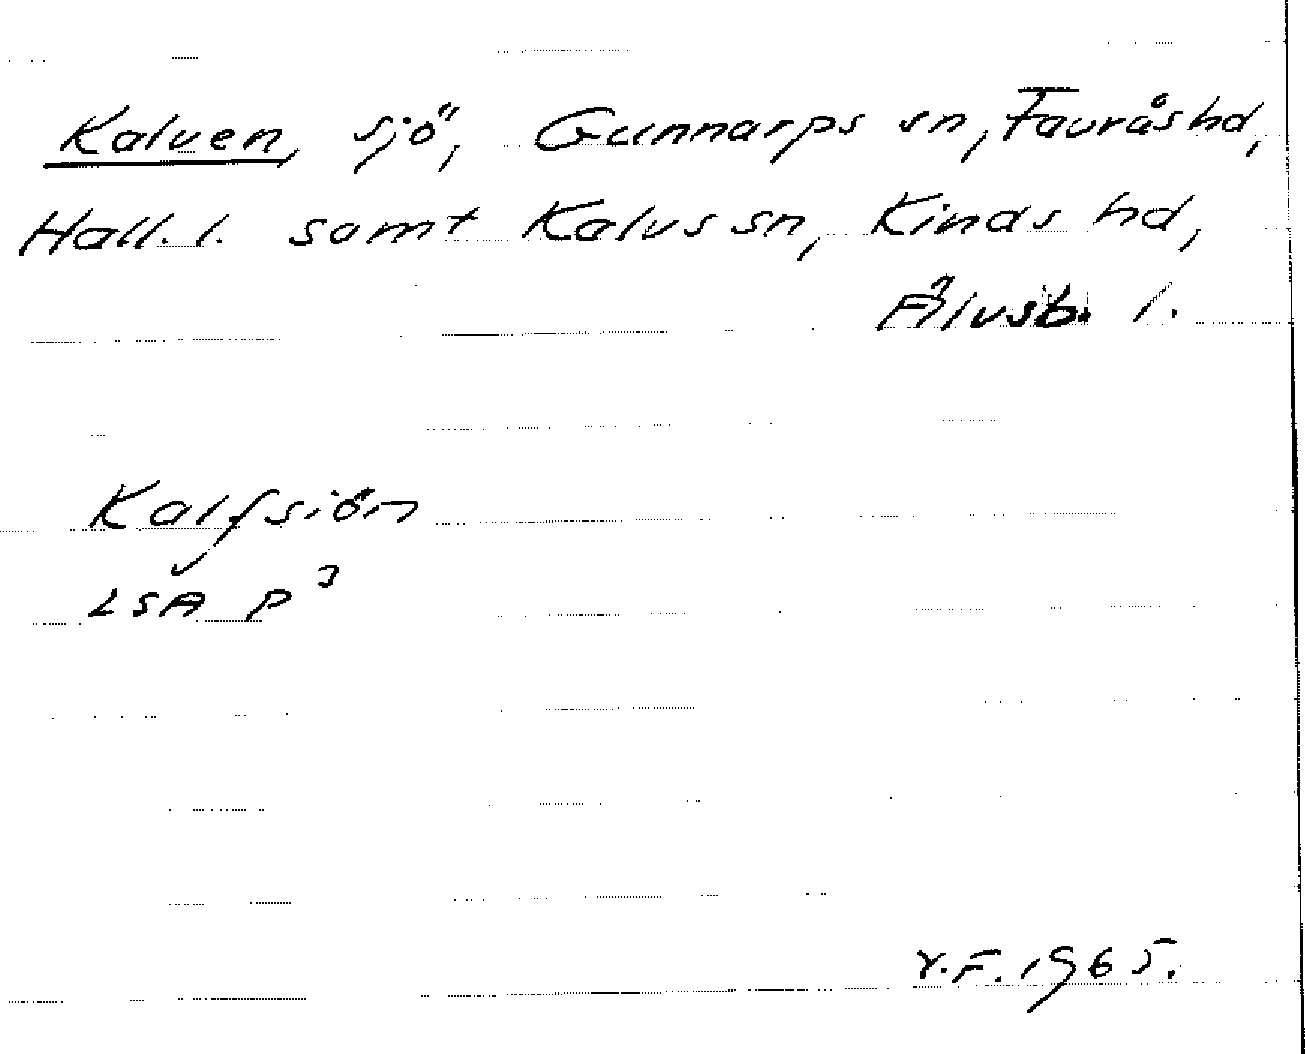 Kalven, sjö, Gunnarps sn, Faurås hd,
Hall. l. samt Kalvs sn, Kinds hd,
Älvsb. l.
Kalfsiön
LSA P3
V.F. 1965.